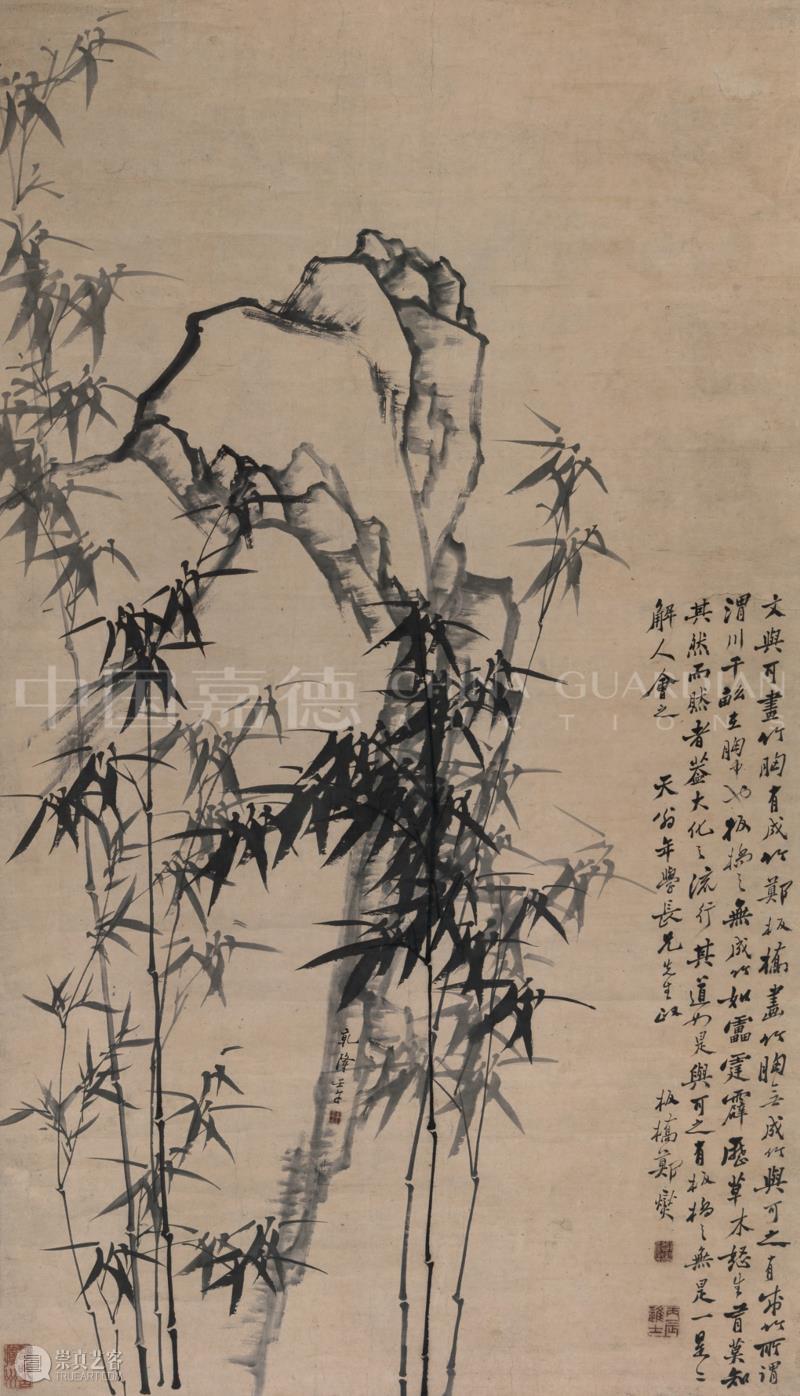 文與可畫竹胸有成竹鄭板橋畫竹胸無成竹與可之有成竹所謂
渭川千畝在胸中也板橋之無成竹如雷霆霹歷草木怒生有莫知
其然而然者蓋大化之流行其道如是與可之有板橋之無是一是二
解人會之 天翁年學長兄先生政 板橋鄭燮
丙辰進士
乾隆壬午
中国嘉德 CHINA GUARDIAN
AUCTIONS
崇真艺客
TRUEART.COM